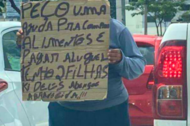 PEÇO UMA
AJUDA PRA COMPRAR
ALIMENTOS E
PAGAR ALUGUEL
TENHO 2 FILHAS
DEUS ABENÇOE